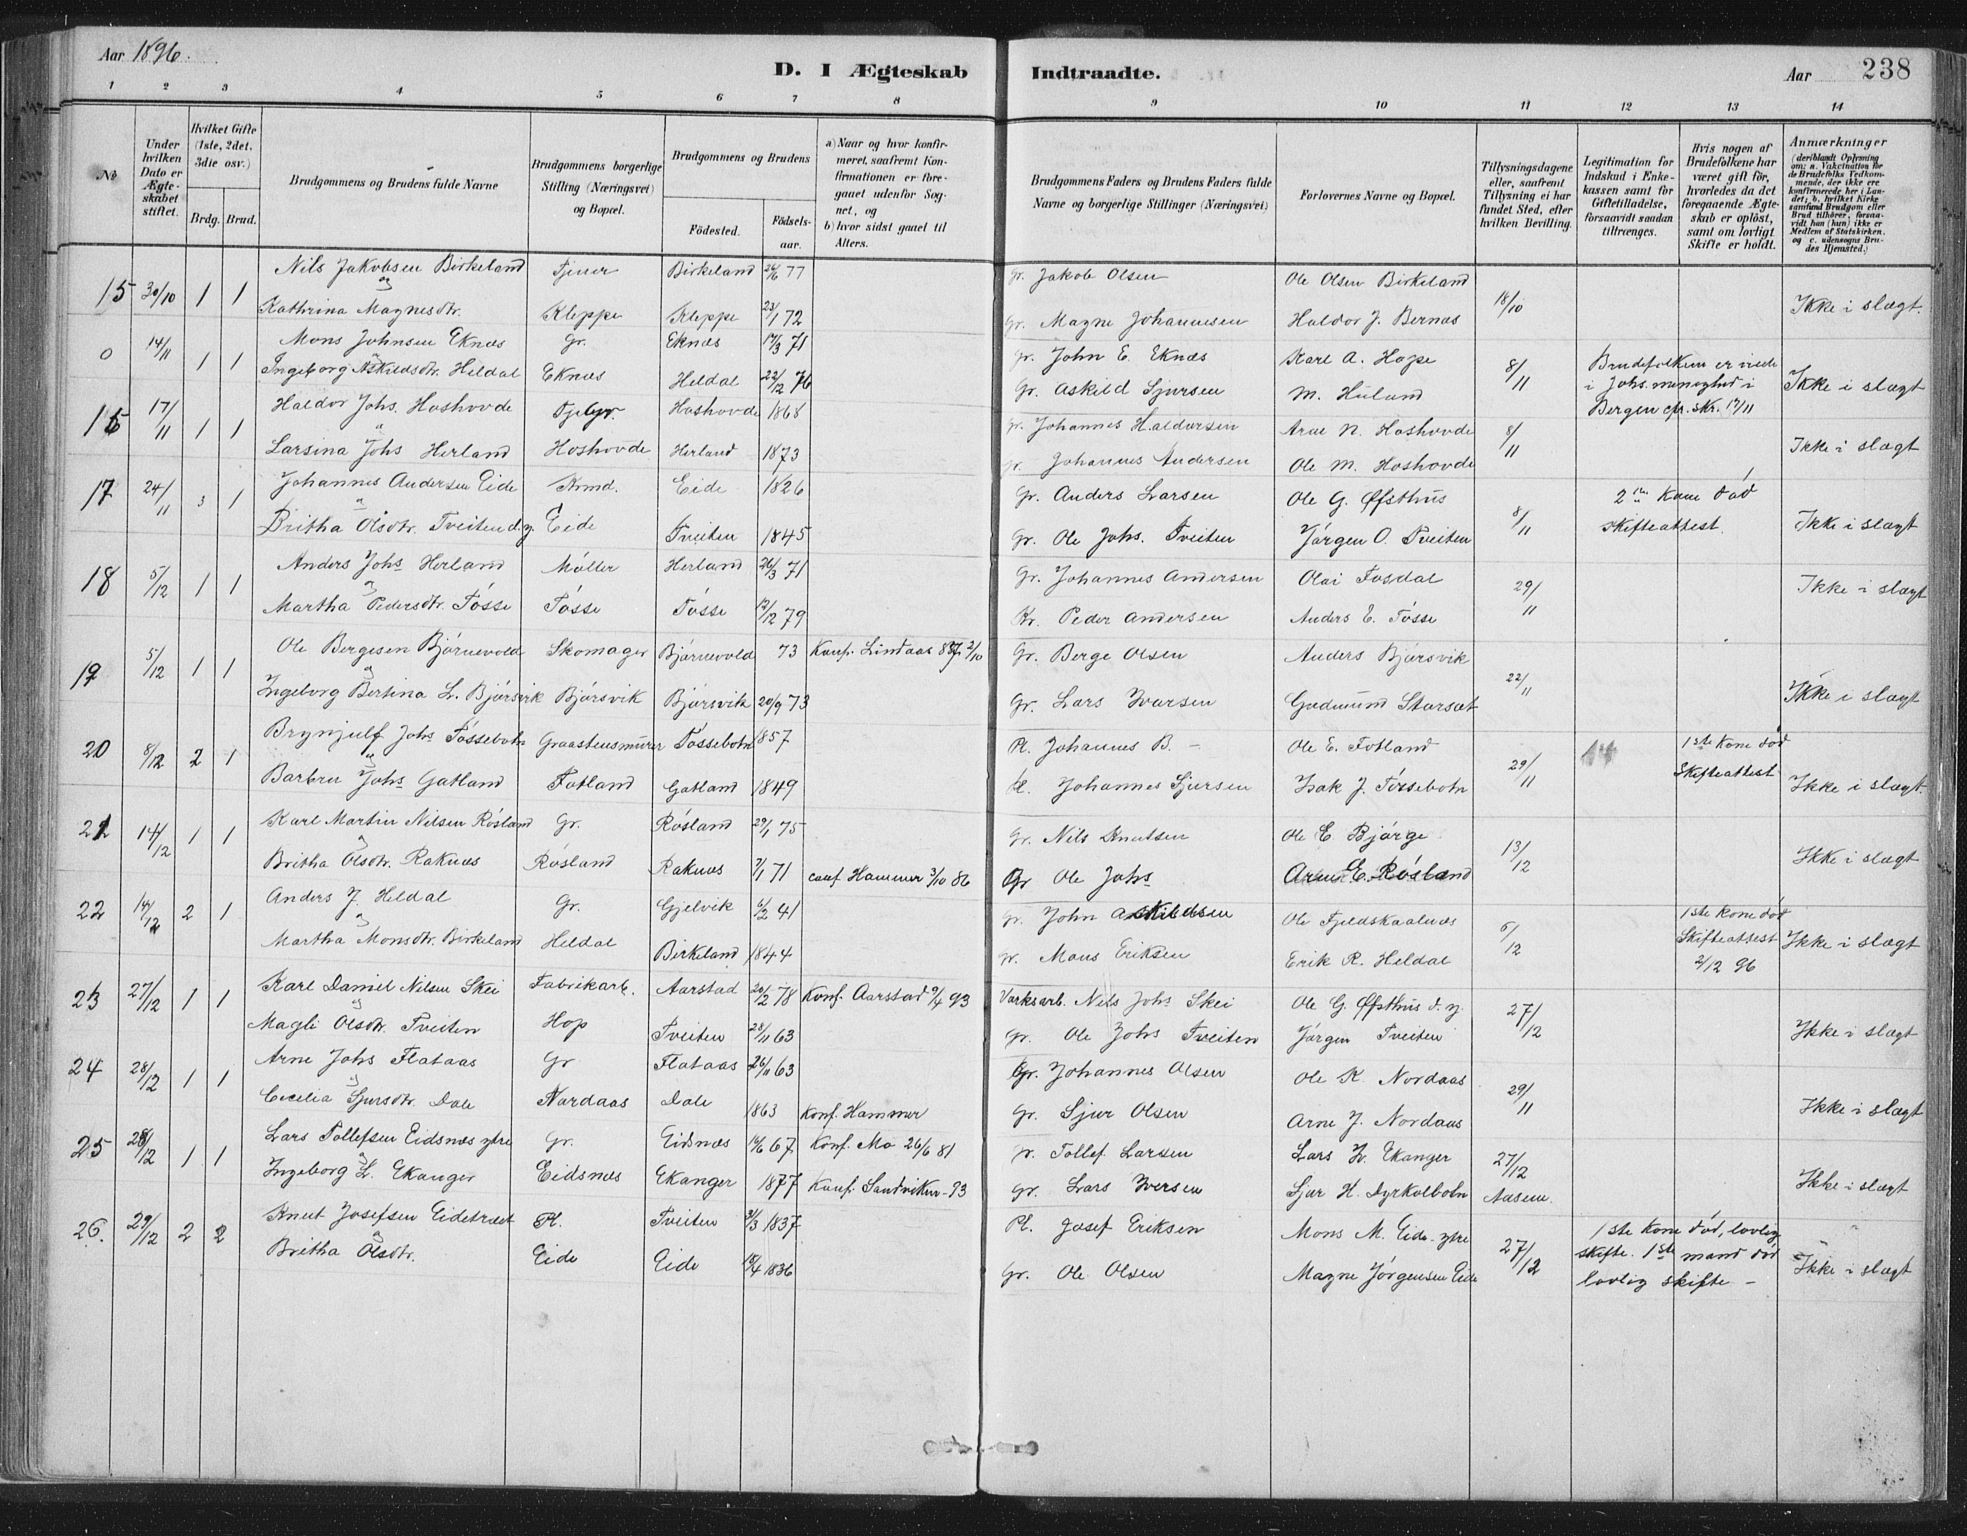 Aar 1896.
D. I Ægteskab Indtraadte.
Aar
238
1 2 3 4 5 6 7 8 9 10 11 12 13 14
No
Under hvilken Dato er Ægteskabet stiftet.
Hvilket Gifte (1ste, 2det, 3die osv.)
Brdg. Brud.
Brudgommens og Brudens fulde Navne
Brudgommens borgerlige Stilling (Næringsvei) og Bopæl.
Brudgommens og Brudens
Födested. Födselsaar.
a) Naar og hvor konfirmeret, saafremt Konfirmationen er foregaaet udenför Sognet, og
b) hvor sidst gaaet til Alters.
Brudgommens Faders og Brudens Faders fulde Navne og borgerlige Stillinger (Næringsvei)
Forlovernes Navne og Bopæl.
Tillysningsdagene eller, saafremt Tillysning ei har fundet Sted, efter hvilken Bevilling.
Legitimation for Indskud i Enkekassen samt for Giftetilladelse, forsaavidt saadan tiltrænges.
Hvis nogen af Brudefolkene har været gift för, hvorledes da det foregaaende Ægteskab er oplöst, samt om lovligt Skifte er holdt.
Anmærkninger
15 30/10 1 1 Nils Jakobsen Birkeland Tjener Birkeland 26/6 77 Gr. Jakob Olsen Ole Olsen Birkeland 18/10 Ikke i slægt.
og
Kathrina Magnesdtr. Kleppe Kleppe 23/1 72 Gr. Magne Johannesen Haldor J. Bernæs
0 14/11 1 1 Mons Johnsen Eknæs Gr. Eknæs 17/3 71 Gr. John E. Eknæs Karl A. Hope 8/11 Brudefolkene er viede i Johs. menighed i Bergen cfr. skr. 17/11 Ikke i slægt
Ingeborg Askildsdtr. Heldal Eknæs Heldal 22/12 76 Gr. Askild Sjursen M. Huland
16 17/11 1 1 Haldor Johs. Hoshovde Gr. Hoshovde 1868 Gr. Johannes Haldorsen Arne N. Hoshovde 8/11 Ikke i slægt
Larsina Johs Herland Hoshovde Herland 1873 Gr. Johannes Andersen Ole M. Hoshovde
17 24/11 3 1 Johannes Andersen Eide Krmd. Eide 1826 Gr. Anders Larsen Ole G. Øfsthus 8/11 2den Kone død skifteattest. Ikke i slægt
Britha Olsdtr. Tveiten d.y. Eide Tveiten 1845 Gr. Ole Johs. Tveiten Jørgen O. Tveiten
18 5/12 1 1 Anders Johs Herland Møller Herland 26/3 71 Gr. Johannes Andersen Olai Fosdal 29/11 Ikke i slægt
og
Martha Pedersdtr. Tøsse Tøsse Tøsse 12/12 79 Kr. Peder Andersen Anders E. Tøsse
19 5/12 1 1 Ole Bergesen Bjørnevold Skomager Bjørnevold 73 Konf. Lindaas 887 2/10 Gr. Berge Olsen Anders Bjørsvik 22/11 Ikke i slægt
og
Ingeborg Bertina L. Bjørsvik Bjørsvik Bjørsvik 20/9 73 Gr. Lars Ivarsen Gudmund Storsæt
20 8/12 2 1 Brynjulf Johs Tøssebotn Graastensmurer Tøssebotn 1857 Pl. Johannes B. - Ole E. Fotland 29/11 1ste Kone død Skifteattest Ikke i slægt.
og
Barbru Johs Gatland Fotland Gatland 1849 Johannes Sjursen Isak J. Tøssebotn
21 14/12 1 1 Karl Martin Nilsen Røsland Gr. Røsland 29/1 75 Gr. Nils Knutsen Ole E. Bjørge 13/12 Ikke i slægt
og
Britha Olsdtr. Raknæs Røsland Raknæs 2/1 71 conf Hammer 3/10 86 Gr Ole Johs Arne E. Røsland
22 14/12 2 1 Anders J. Heldal Gr. Gjelvik 6/2 41 Gr. John Askildsen Ole Fjeldskaalnæs 6/12 1ste Kone død Skifteattest 2/12 96 Ikke i slægt
og
Martha Monsdtr. Birkeland Heldal Birkeland 1844 Gr. Mons Eriksen Erik R. Heldal
23 27/12 1 1 Karl Daniel Nilsen Skei Fabrikarb. Aarstad 20/2 78 Konf. Aarstad 9/4 93 Værksarb. Nils Johs Skei Ole G. Øfsthus d.y. 27/12 Ikke i slægt
og
Magli Olsdtr. Tveiten Hop Tveiten 23/11 63 Gr. Ole Johs Tveiten Jørgen Tveiten
24 28/12 1 1 Arne Johs Flataas Gr Flataas 26/11 63 Gr. Johannes Olsen Ole K. Nordaas 29/11 Ikke i slægt
og
Cecilia Sjursdtr. Dale Nordaas Dale 1863 Konf. Hammer Gr. Sjur Olsen Arne J. Nordaas
25 28/12 1 1 Lars Tollefsen Eidsnæs ytre Gr. Eidsnæs 16/6 67 Konf. Mo 26/6 81 Gr. Tollef Larsen Lars Iv. Ekanger 27/12 Aasene. Ikke i slægt
Ingeborg L. Ekanger Eidsnæs Ekanger 1877 Konf. Sandviken -93 Gr. Lars Iversen Sjur H. Dyrkolbotn
26. 29/12 2 2 Knut Josefsen Eidetræet Pl. Tveiten 31/3 1837 Pl. Josef Eriksen Mons M. Eide ytre 27/12 1ste Kone død, lovlig skifte. 1ste mand død lovlig skifte - Ikke i slægt
og
Britha Olsdtr. Eide Eide 18/4 1836 Gr. Ole Olsen Magne Jørgensen Eide